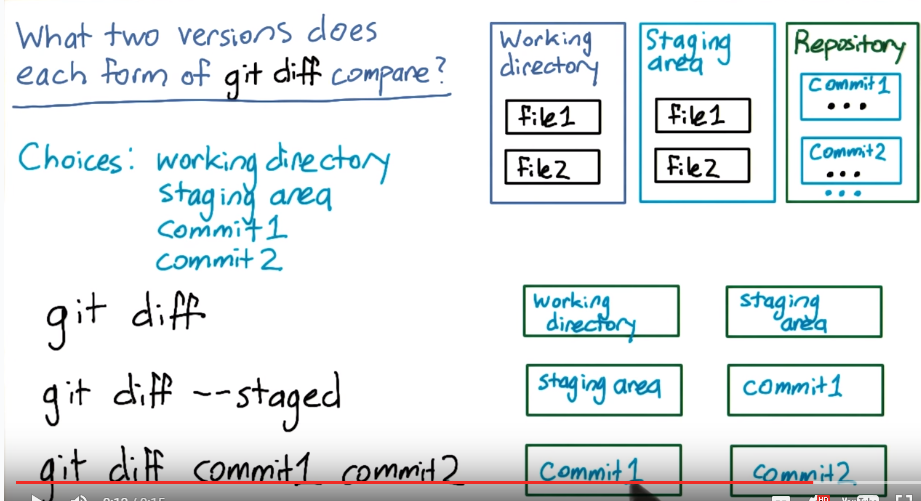 What two versions does
each form of git diff compare?
Choices: working directory
staging area
commit1
commit2
Working
directory
file1
file2
Staging
area
file1
file2
Repository
Commit1
...
Commit2
...
...
git diff
working
directory
staging
area
git diff --staged
staging area
commit1
git diff commit1 commit2
commit1
commit2
HD
YouTube